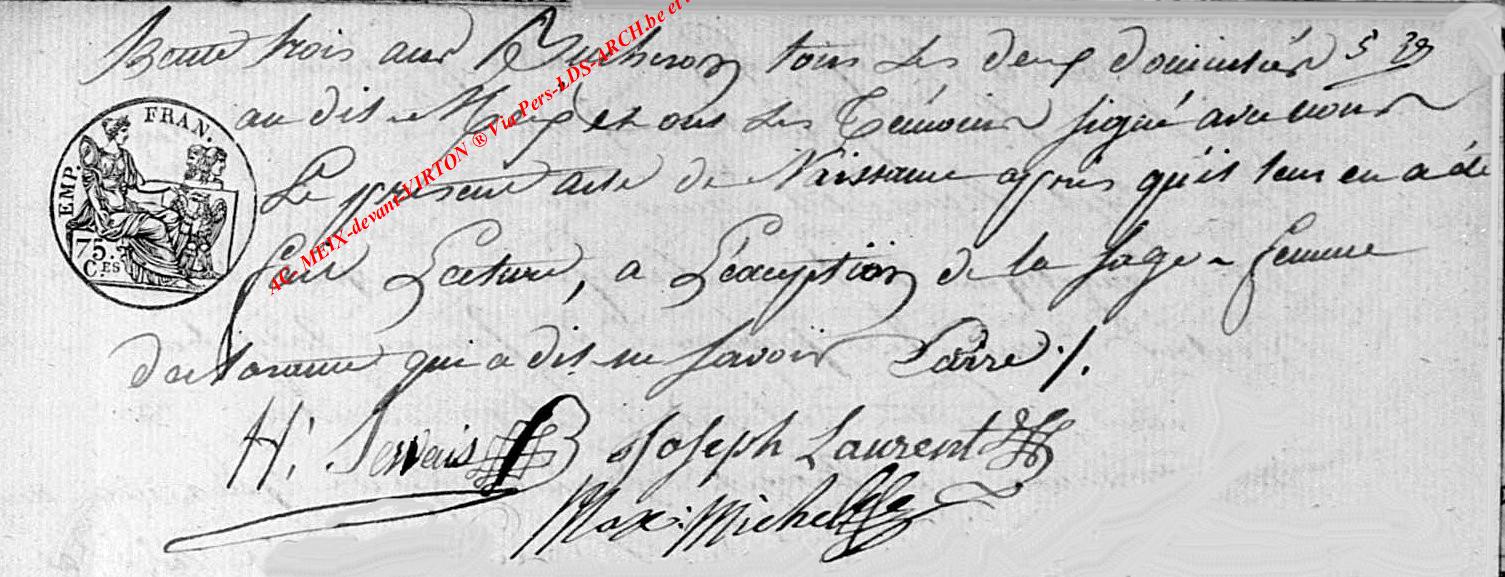 trente trois ans Bucheron, tous les deux domiciliés
au dit Meix et ont les Témoins signé avec nous
Le présent acte de Naissance après qu'il leur en a été
fait Lecture, a L'exception de la sage-femme
declarante qui a dit ne savoir Ecrire ./.
H. Servais Joseph Laurent
Max: Michel
EMP. FRAN.
75.
CES
AC MEIX-devant-VIRTON ® Via Pers-LDS-ARCH.be et